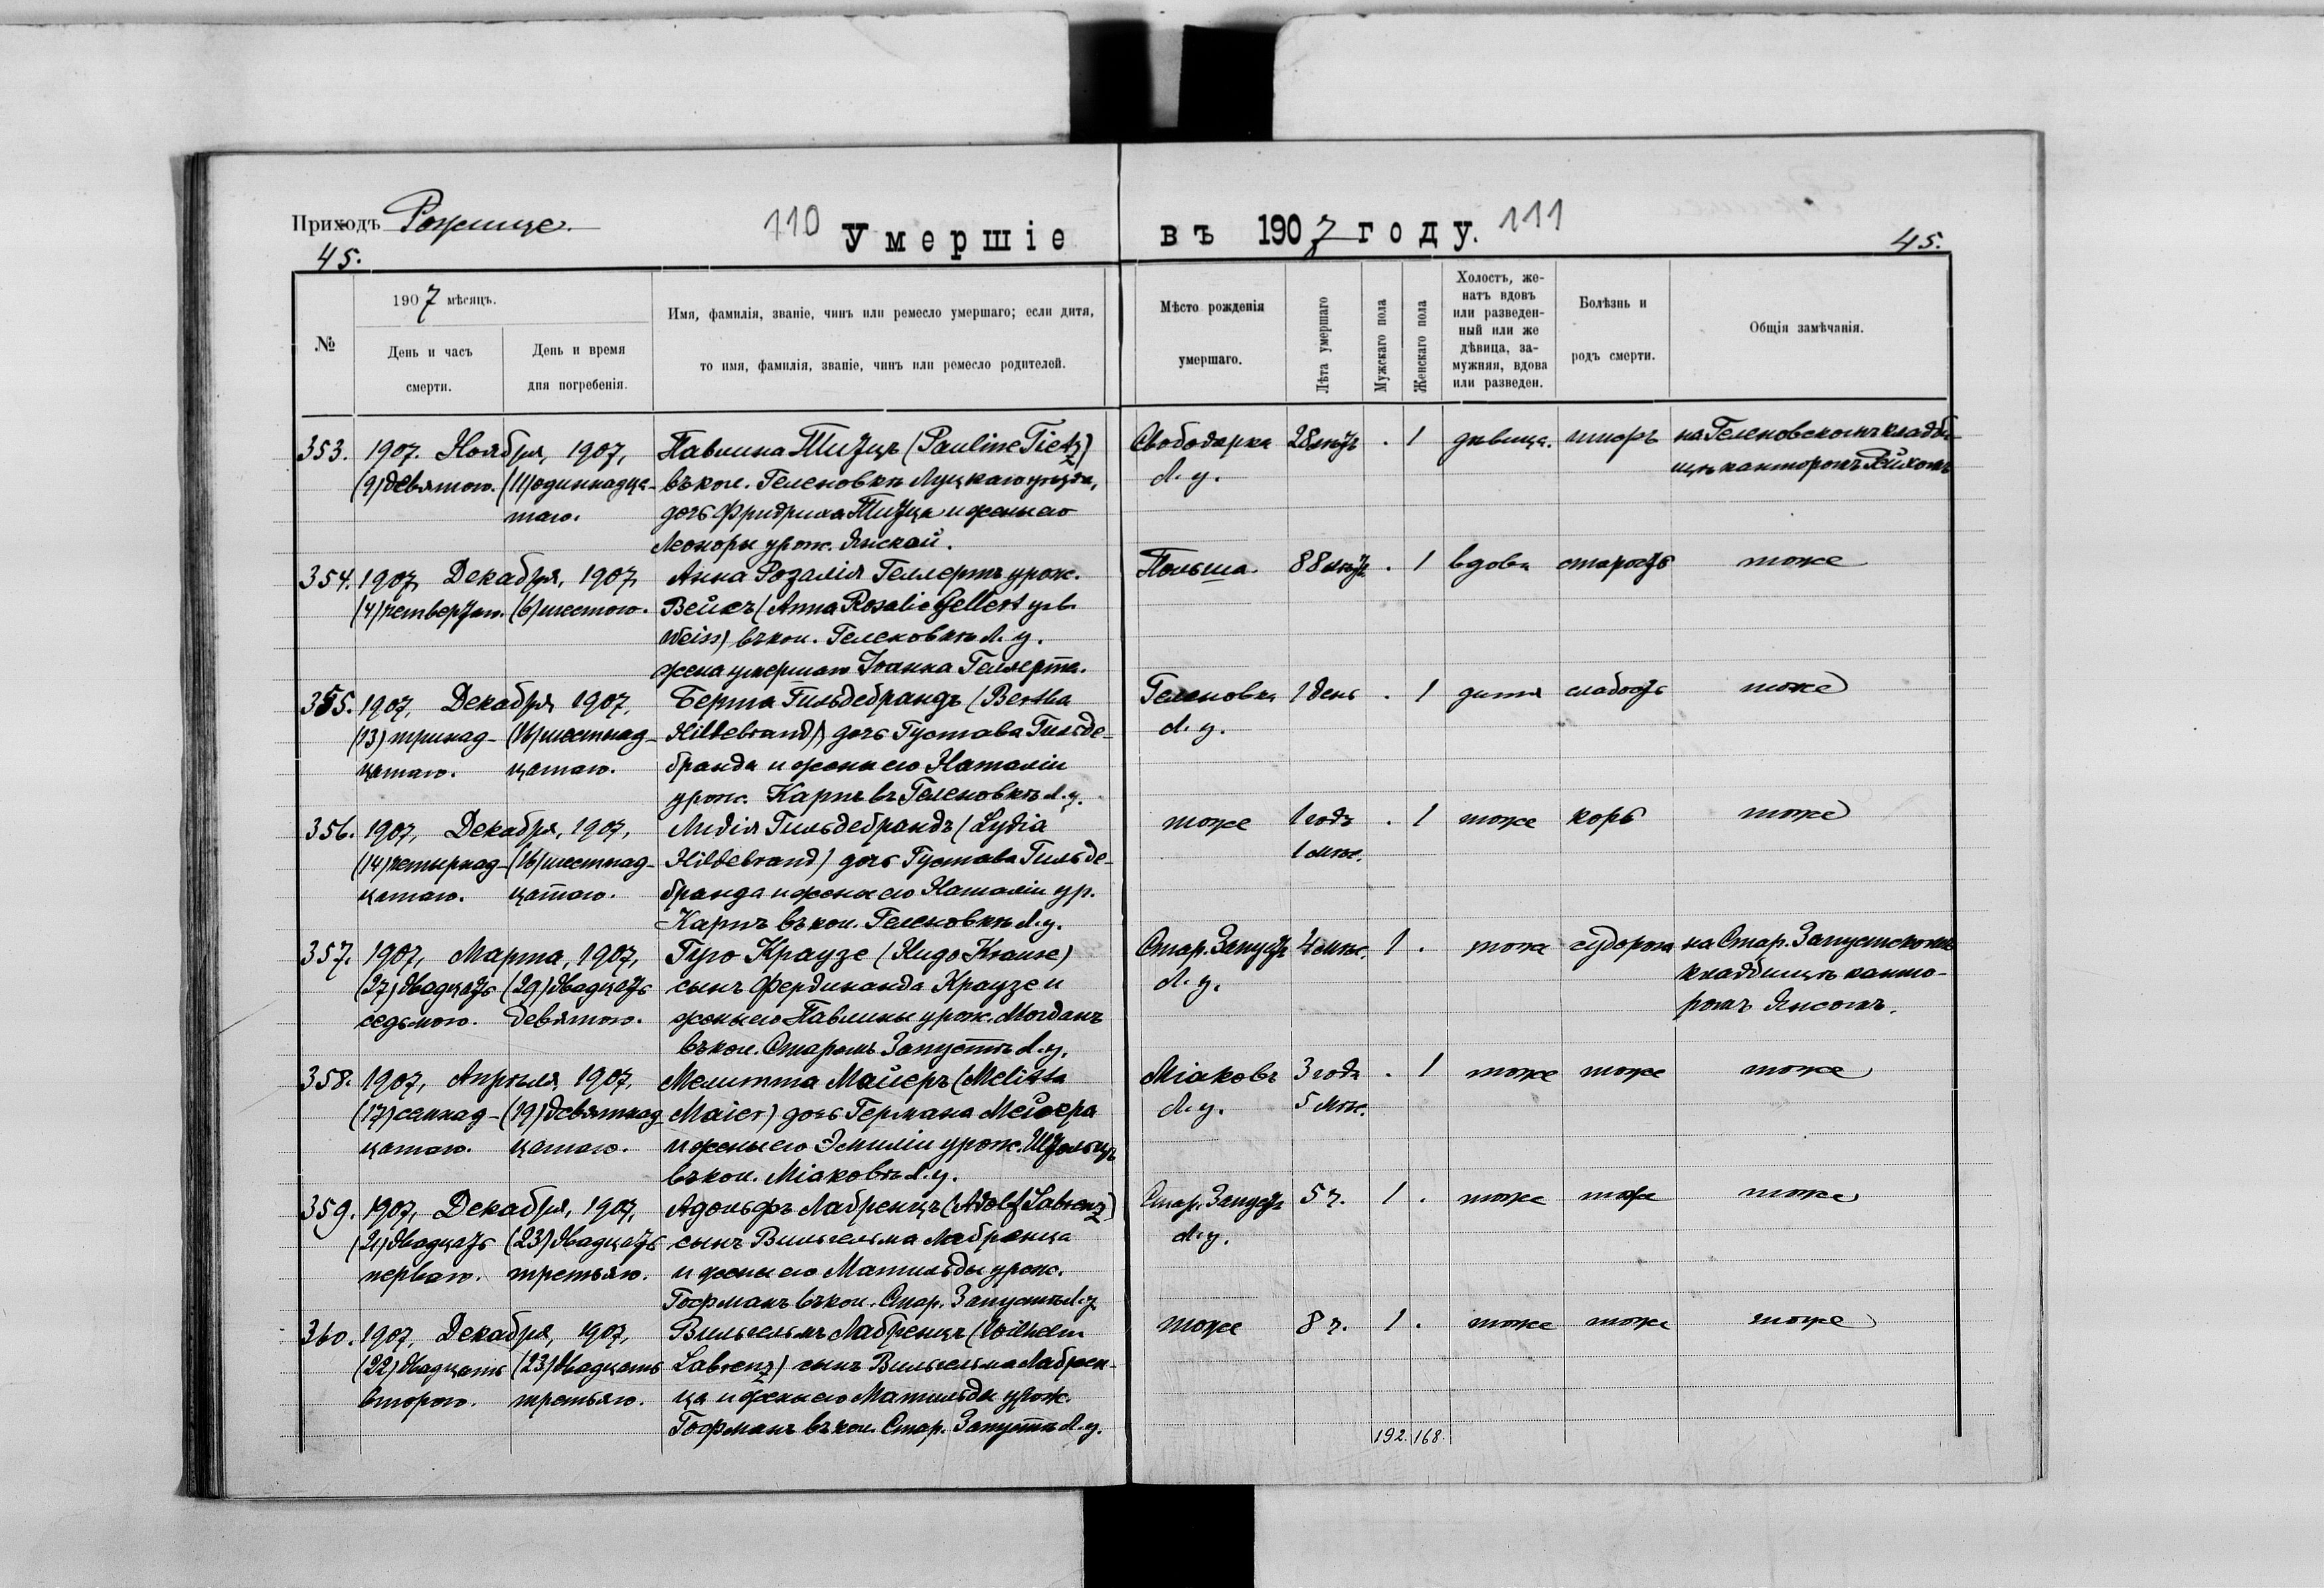 Приходъ Рожище.
110 Умершіе въ 1907 году. 111
45. 45.
№
1907 мѣсяцъ.
День и часъ смерти.
День и время дня погребенія.
Имя, фамилія, званіе, чинъ или ремесло умершаго; если дитя,
то имя, фамилія, званіе, чинъ или ремесло родителей.
Мѣсто рожденія умершаго.
Лѣта умершаго
Мужскаго пола
Женскаго пола
Холостъ, же-
натъ вдовъ
или разведен-
ный или же
дѣвица, за-
мужняя, вдова
или разведен.
Болѣзнь и родъ смерти.
Общія замѣчанія.
353. 1907. Ноября, 1907, Павлина Титцъ (Pauline Tietz) Свободарка 28 лѣтъ . 1 дѣвица. на Геленовскомъ кладби-
(9) девятого. (11) одиннадца- въ кол. Геленовкѣ Луцкаго уѣзда, Л. у. щѣ канторомъ
таго. дочь Фридриха Титца и жены его
Леоноры урож. Янской.
354. 1907, Декабря, 1907, Анна Розалія Геллертъ урож. Польша. 88 лѣтъ . 1 вдова старость тоже
(4) четвертаго. (6) шестого. Вейсъ (Anna Rosalie Gellert geb.
Weiss) въ кол. Геленовкѣ Л. у.
жена умершаго Іоанна Геллерта.
355. 1907, Декабря, 1907, Берта Гильдебрандъ (Bertha Геленовка 1 день . 1 дитя слабость тоже
(13) тринад- (16) шестнад- Hildebrand) дочь Густава Гильде- Л. у.
цатаго. цатаго. бранда и жены его Наталіи
урож. Карпъ въ Геленовкѣ Л. у.
356. 1907, Декабря, 1907, Лидія Гильдебрандъ (Lydia тоже 1 годъ . 1 тоже корь тоже
(14) четырнад- (16) шестнад- Hildebrand) дочь Густава Гильде- 1 мѣс.
цатаго. цатаго. бранда и жены его Наталіи ур.
Карпъ въ кол. Геленовкѣ Л. у.
357. 1907, Марта, 1907, Гуго Краузе (Hugo Krause) Стар. Запустъ 4 мѣс. 1 . тоже судорога на Стар. Запустскомъ
(27) двадцать (29) двадцать сынъ Фердинанда Краузе и Л. у. кладбищѣ канто-
седьмого. девятого. жены его Павлины урож.Морданъ ромъ Янсомъ.
въ кол. Старомъ Запустѣ Л. у.
358. 1907, Апрѣля, 1907, Мелитта Майеръ (Melitta Міаковъ 3 года . 1 тоже тоже тоже
(17) семнад- (19) девятнад- Maier) дочь Германа Мейера Л. у. 5 мѣс.
цатаго. цатаго. и жены его Эмиліи урож. Штольцъ
въ кол. Міаковѣ Л. у.
359. 1907, Декабря, 1907, Адольфъ Лабренцъ (Adolf Labrenz) Стар. Запустъ 5 ч. 1 . тоже тоже тоже
(21) двадцать (23) двадцать сынъ Вильгельма Лабренца Л. у.
перваго. третьяго. и жены его Матильды урож.
Гофманъ въ кол. Стар. Запустѣ Л. у.
360. 1907, Декабря, 1907, Вильгельмъ Лабренцъ (Wilhelm тоже 8 ч. 1 . тоже тоже тоже
(22) двадцать (23) двадцать Labrenz) сынъ Вильгельма Лабрен-
второго. третьяго. ца и жены его Матильды урож.
Гофманъ въ кол. Стар. Запустѣ Л. у.
192. 168.